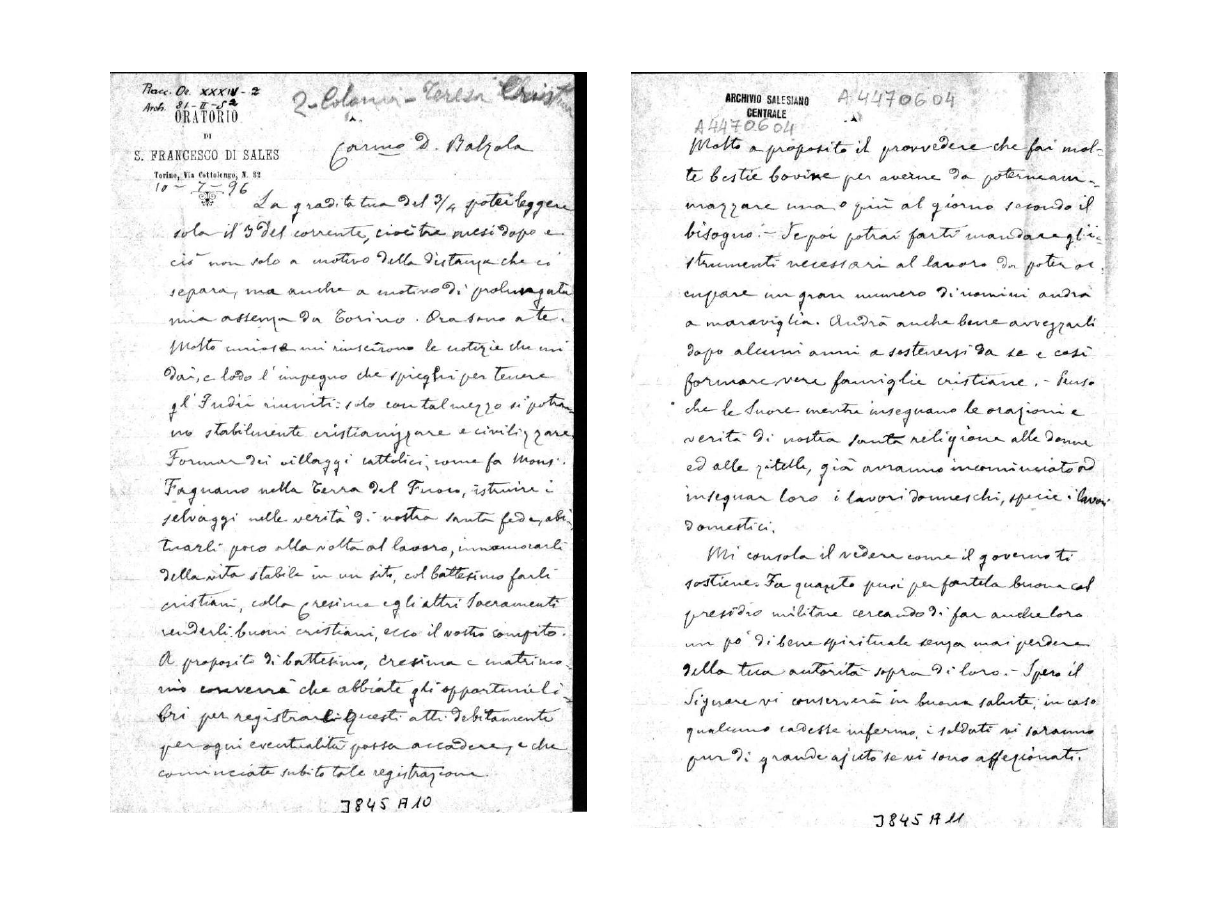 Racc. Or. XXXIV - 2
Arch. 31-II-52
2- Colonia - Teresa Crist
ORATORIO
DI
S. FRANCESCO DI SALES
Torino, Via Cottolengo, N. 32
10 - 7 - 96
Carmo D. Balzola
La gradita tua del 3/4 potei leggere
solo il 3 del corrente, cioè tre mesi dopo e
ciò non solo a motivo della distanza che ci
separa, ma anche a motivo di prolungata
mia assenza da Torino. Ora sono a te.
Molto curiose mi riuscirono le notizie che mi
dai, e lodo l'impegno che spieghi per tenere
gl'Indii riuniti: solo con tal mezzo si potran-
no stabilmente cristianizzare e civilizzare.
Formar dei villaggi cattolici, come fa Mons.
Fagnano nella Terra del Fuoco, istruire i
selvaggi nelle verità di nostra santa fede, abi-
tuarli poco alla volta al lavoro, innamorarli
della vita stabile in un sito, col battesimo farli
cristiani, colla Cresima e gli altri Sacramenti
renderli buoni cristiani, ecco il vostro compito.
A proposito di battesimo, cresima e matrimo-
nio converrà che abbiate gli opportuni li-
bri per registrarli questi atti debitamente
per ogni eventualità possa accadere, e che
cominciate subito tale registrazione.
J845 A10
ARCHIVIO SALESIANO
CENTRALE
A4470604
A4470604
Molto a proposito il provvedere che fai mol-
te bestie bovine per averne da poterne am-
mazzare una o più al giorno secondo il
bisogno. - Se poi potrai farti mandare gl'i-
strumenti necessari al lavoro da poter oc-
cupare un gran numero di uomini andrà
a maraviglia. Andrà anche bene avvezzarli
dopo alcuni anni a sostenersi da se e così
formare vere famiglie cristiane. - Penso
che le Suore mentre insegnano le orazioni e
verità di nostra santa religione alle donne
ed alle zitelle, già avranno incominciato ad
insegnar loro i lavori donneschi, specie i lavori
domestici.
Mi consola il vedere come il governo ti
sostiene. Fa quanto puoi per fartela buona col
presidio militare cercando di far anche loro
un po' di bene spirituale senza mai perdere
della tua autorità sopra di loro. - Spero il
Signore vi conserverà in buona salute, in caso
qualcuno cadesse infermo, i soldati vi saranno
pur di grande ajuto se vi sono affezionati.
J845 A11